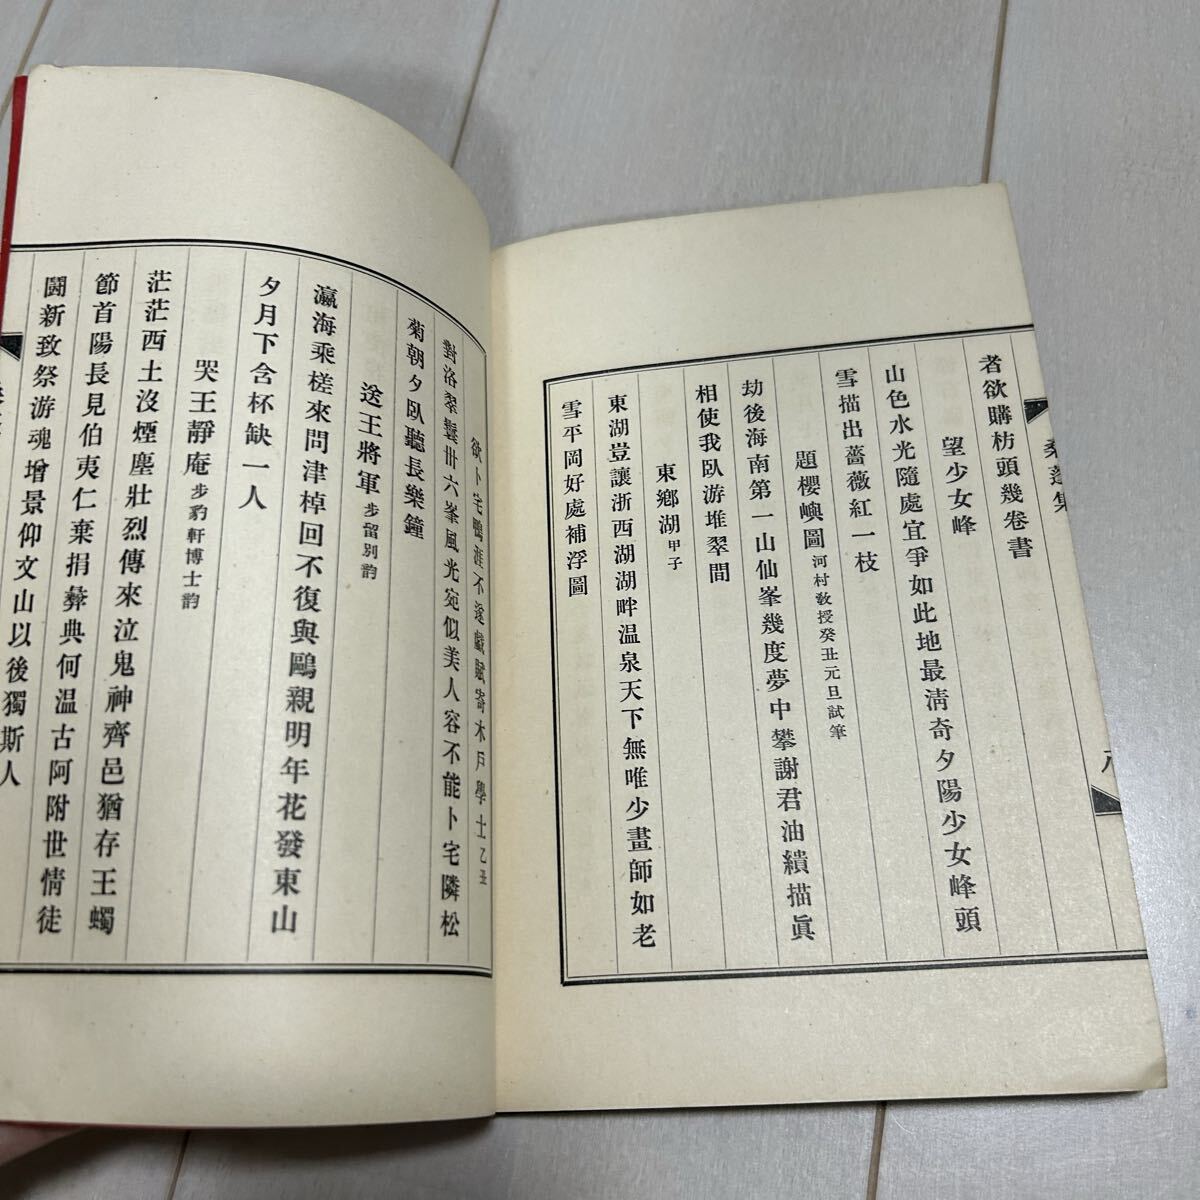 桑蓬集
者欲購枋頭幾卷書
望少女峰
山色水光隨處宜爭如此地最淸奇夕陽少女峰頭
雪描出薔薇紅一枝
題櫻嶼圖河村敎授癸丑元旦試筆
劫後海南第一山仙峯幾度夢中攀謝君油繢描眞
相使我臥游堆翠間
東鄕湖甲子
東湖豈讓浙西湖湖畔温泉天下無唯少畫師如老
雪平岡好處補浮圖
欲卜宅鴨涯不遂戲賦寄木戶學士乙丑
對洛翠鬟卅六峯風光宛似美人容不能卜宅隣松
菊朝夕臥聽長樂鐘
送王將軍步留別韵
瀛海乘槎來問津棹回不復與鷗親明年花發東山
夕月下含杯缺一人
哭王靜庵步豹軒博士韵
茫茫西土沒煙塵壯烈傳來泣鬼神齊邑猶存王蠋
節首陽長見伯夷仁棄捐彝典何温古阿附世情徒
鬪新致祭游魂增景仰文山以後獨斯人